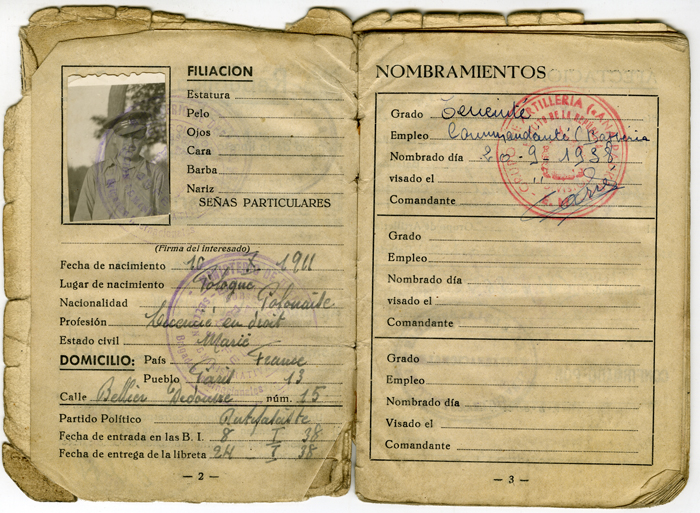 FILIACION
Estatura
Pelo
Ojos
Cara
Barba
Nariz
SEÑAS PARTICULARES
(Firma del interesado)
Fecha de nacimiento 10 X 1911
Lugar de nacimiento Pologne
Nacionalidad Polonaise
Profesión Licencié en droit
Estado civil Marié
DOMICILIO: País France
Pueblo Paris 13
Calle Bellier Dedouvre núm. 15
Partido Político Antifasciste
Fecha de entrada en las B. I. 8 I 38
Fecha de entrega de la libreta 24 - I 38
— 2 —
NOMBRAMIENTOS
Grado Teniente
Empleo Commandante Batteria
Nombrado día 20-9-1938
visado el "
Comandante
Grado
Empleo
Nombrado día
visado el
Comandante
Grado
Empleo
Nombrado día
Visado el
Comandante
— 3 —